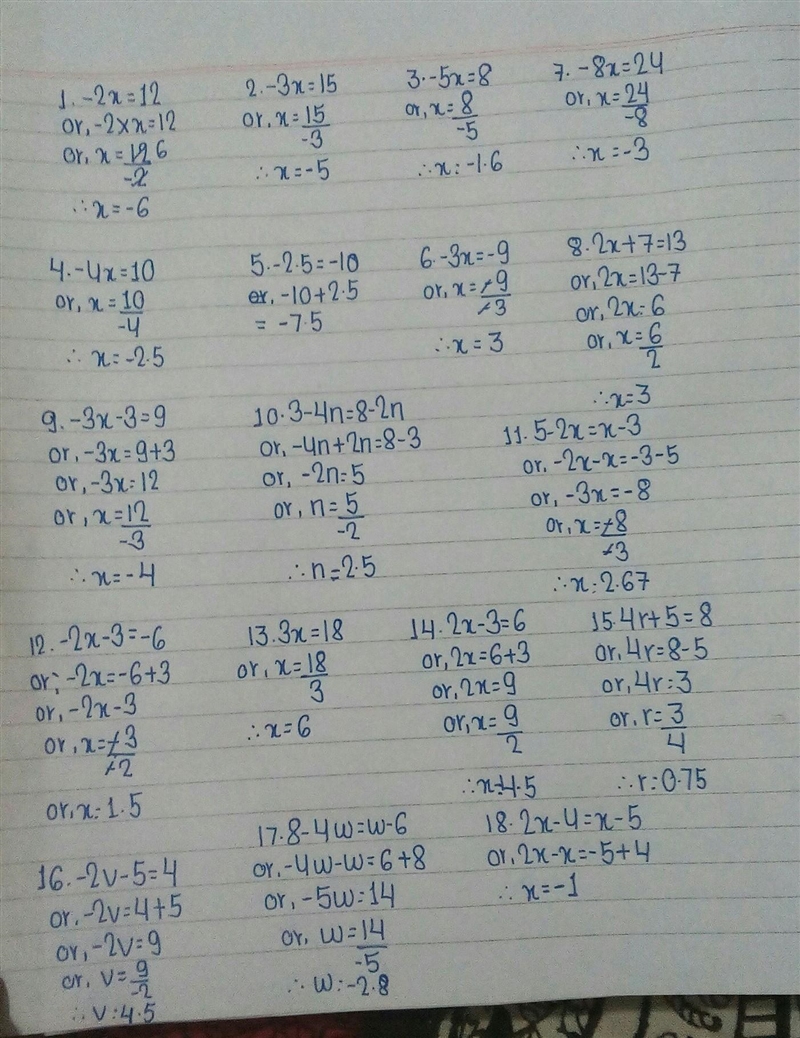 1. -2x=12
or, -2×x=12
or, x=12 6/-2
∴x=-6
2. -3x=15
or, x=15/-3
∴x=-5
3. -5x=8
or, x=8/-5
∴x=-1.6
7. -8x=24
or, x=24/-8
∴x=-3
4. -4x=10
or, x=10/-4
∴x=-2.5
5. -2.5=-10
or, -10+2.5
=-7.5
6. -3x=-9
or, x=-9/-3
∴x=3
8. 2x+7=13
or, 2x=13-7
or, 2x=6
or, x=6/2
∴x=3
9. -3x-3=9
or, -3x=9+3
or, -3x=12
or, x=12/-3
∴x=-4
10. 3-4n=8-2n
or, -4n+2n=8-3
or, -2n=5
or, n=5/-2
∴n=2.5
11. 5-2x=x-3
or, -2x-x=-3-5
or, -3x=-8
or, x=-8/-3
∴x=2.67
12. -2x-3=-6
or, -2x=-6+3
or, -2x-3
or, x=-3/-2
or, x=1.5
13. 3x=18
or, x=18/3
∴x=6
14. 2x-3=6
or, 2x=6+3
or, 2x=9
or, x=9/2
∴x=4.5
15. 4r+5=8
or, 4r=8-5
or, 4r=3
or, r=3/4
∴r=0.75
16. -2v-5=4
or, -2v=4+5
or, -2v=9
or, v=9/-2
∴v=4.5
17. 8-4w=w-6
or, -4w-w=6+8
or, -5w=14
or, w=14/-5
∴w=-2.8
18. 2x-4=x-5
or, 2x-x=-5+4
∴x=-1